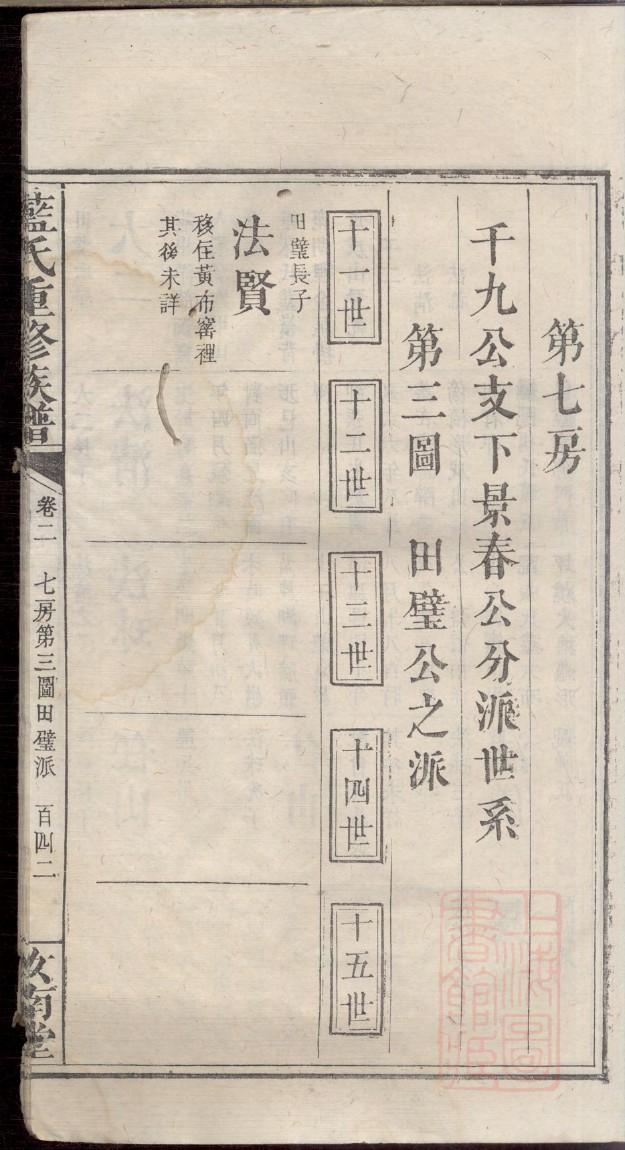 第七房
千九公支下景春公分派世系
第三圖　田璧公之派
十一世
十二世
十三世
十四世
十五世
田璧長子
法賢
移住黃布窰裡
其後未詳
藍氏重修族譜
卷二　七房第三圖田璧派　百四二
汝南堂
上海圖書館藏